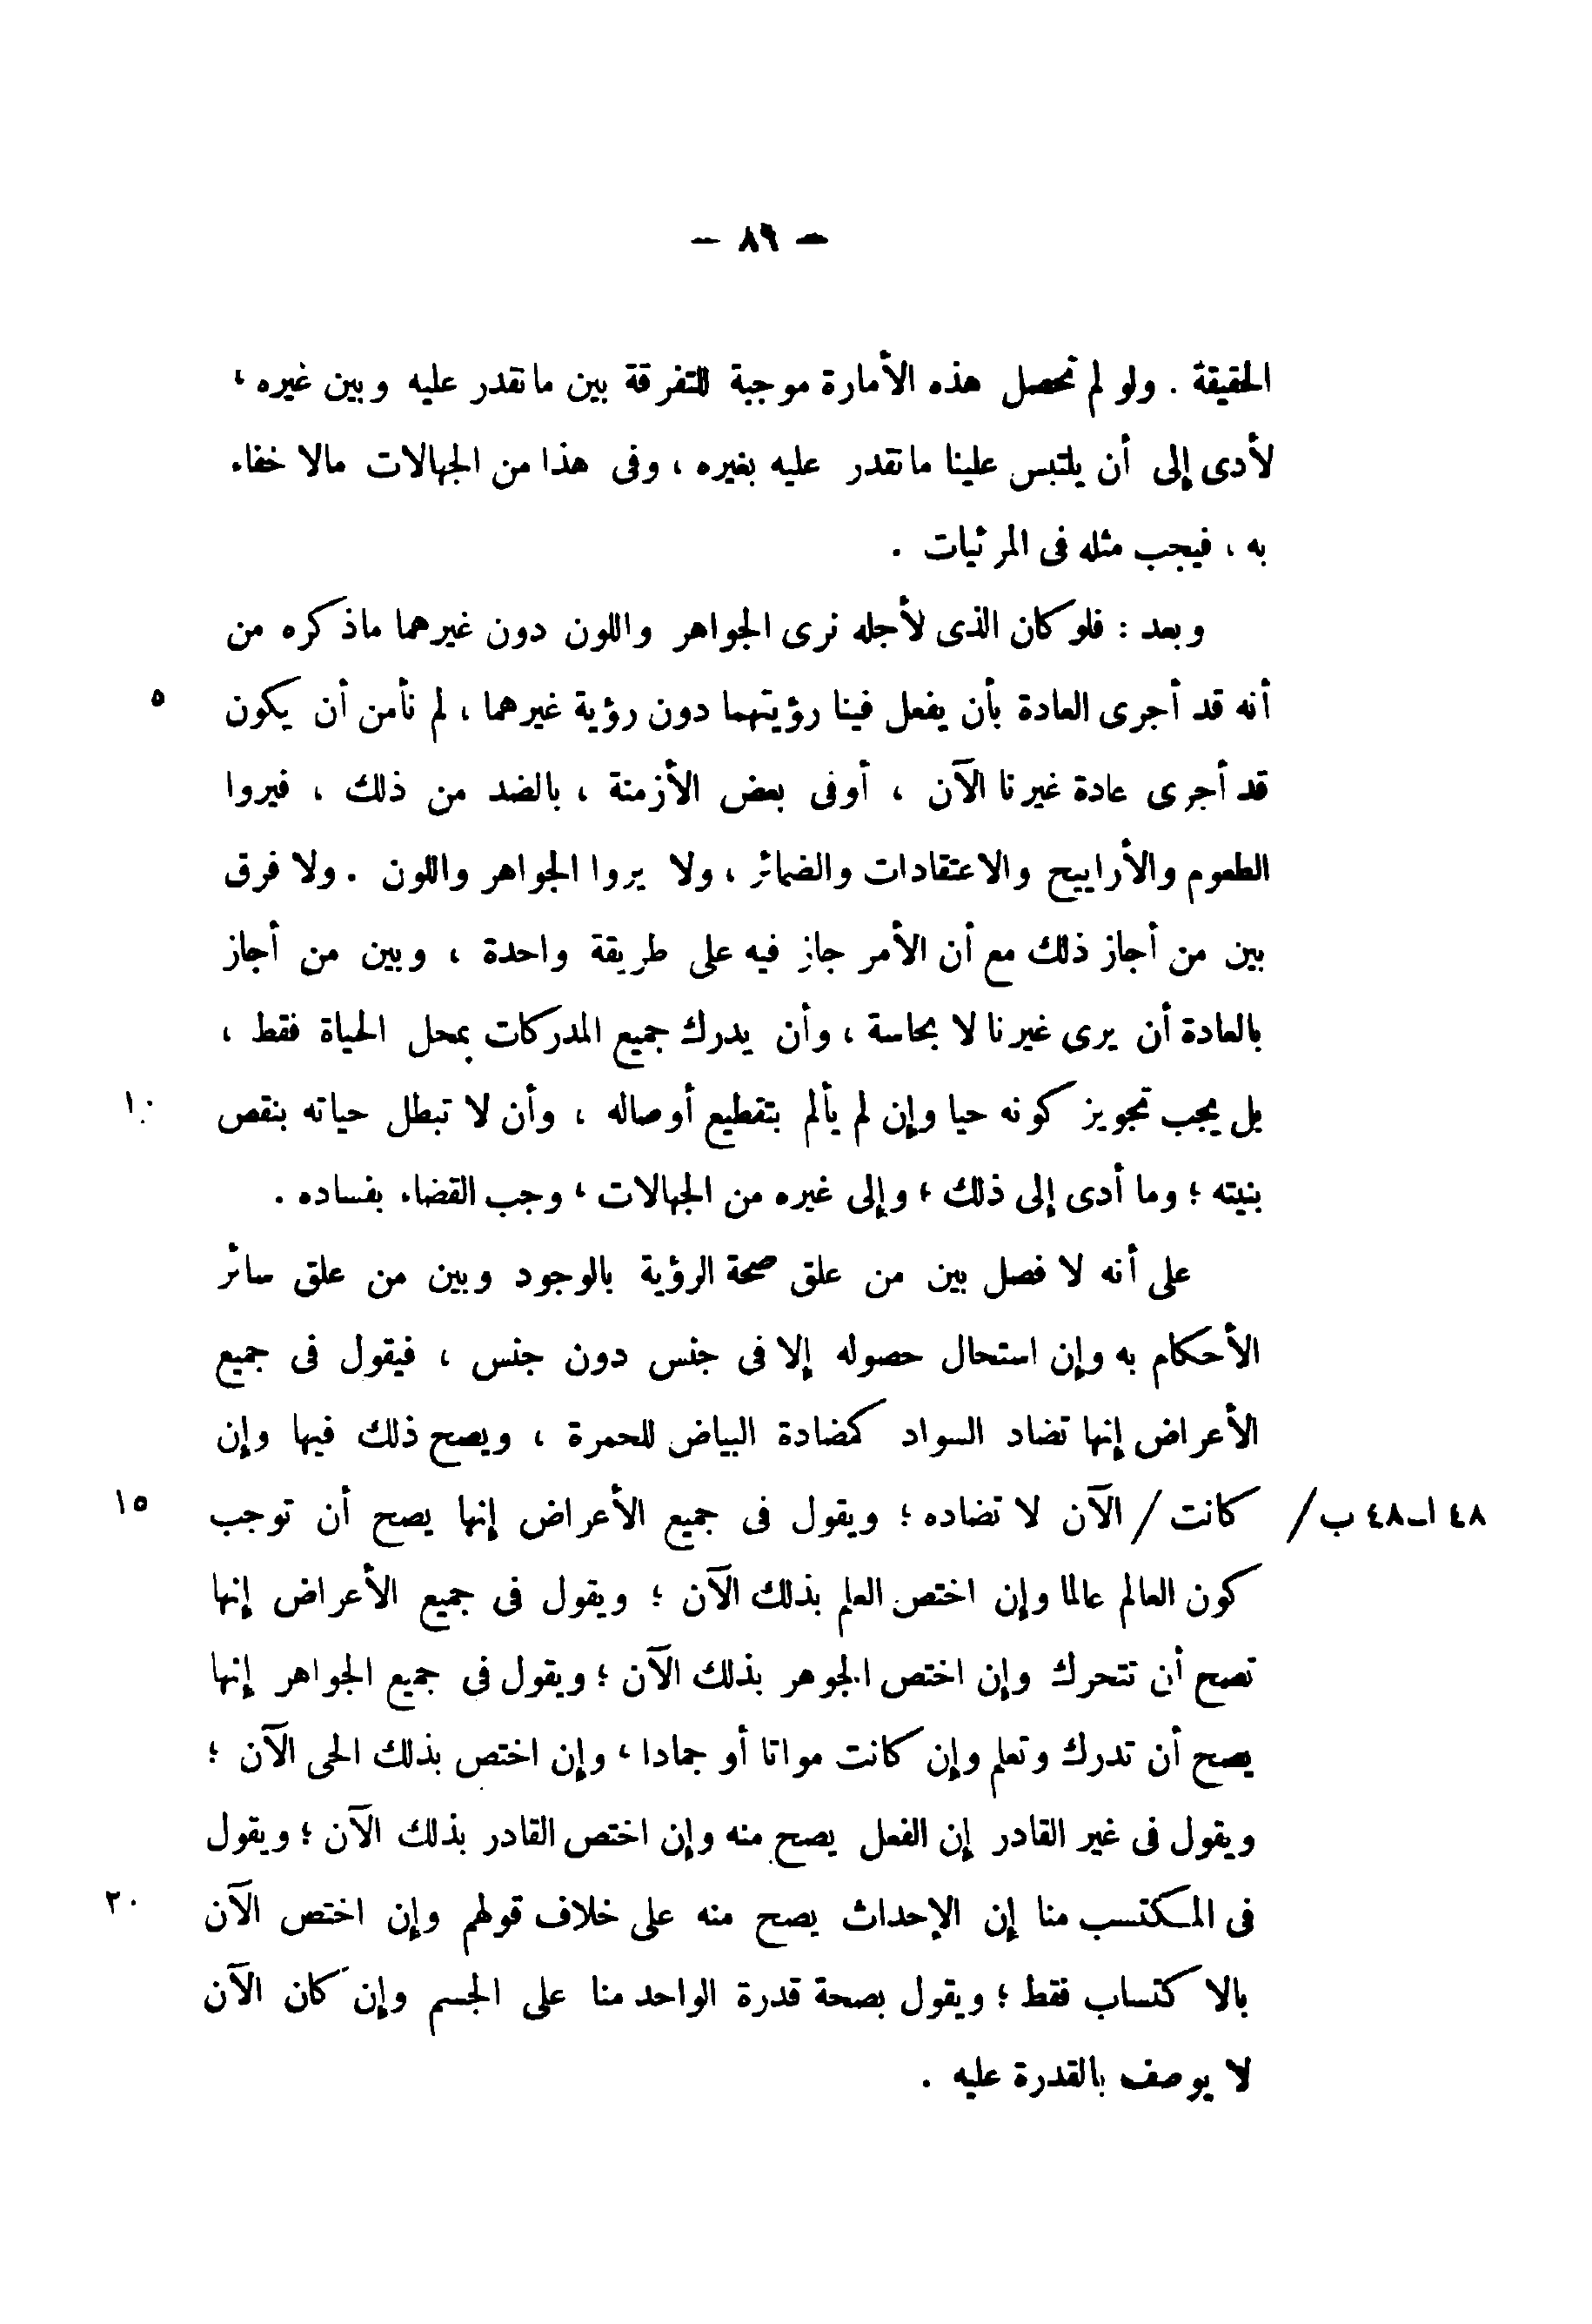 — ٨٩ —
الحقيقة . ولو لم تحصل هذه الأمارة موجبة للتفرقة بين ما نقدر عليه وبين غيره ،
لأدى إلى أن يلتبس علينا ما نقدر عليه بغيره ، وفى هذا من الجهالات مالا خفاء
به ، فيجب مثله فى المرئيات .
وبعد : فلو كان الذى لأجله نرى الجواهر واللون دون غيرهما ماذكره من
أنه قد أجرى العادة بأن يفعل فينا رؤيتهما دون رؤية غيرهما ، لم نأمن أن يكون ٥
قد أجرى عادة غيرنا الآن ، أوفى بعض الأزمنة ، بالضد من ذلك ، فيروا
الطعوم والأراييح والاعتقادات والضمائر ، ولا يروا الجواهر واللون . ولا فرق
بين من أجاز ذلك مع أن الأمر جاز فيه على طريقة واحدة ، وبين من أجاز
بالعادة أن يرى غيرنا لا بحاسة ، وأن يدرك جميع المدركات بمحل الحياة فقط ،
بل يجب تجويز كونه حيا وإن لم يألم بتقطيع أوصاله ، وأن لا تبطل حياته بنقص ١٠
بنيته ؛ وما أدى إلى ذلك ؛ وإلى غيره من الجهالات ، وجب القضاء بفساده .
على أنه لا فصل بين من علق صحة الرؤية بالوجود وبين من علق سائر
الأحكام به وإن استحال حصوله إلا فى جنس دون جنس ، فيقول فى جميع
الأعراض إنها تضاد السواد كمضادة البياض للحمرة ، ويصح ذلك فيها وإن
٤٨ ا-٤٨ ب / كانت / الآن لا تضاده ؛ ويقول فى جميع الأعراض إنها يصح أن توجب ١٥
كون العالم عالما وإن اختص العلم بذلك الآن ؛ ويقول فى جميع الأعراض إنها
تصح أن تتحرك وإن اختص الجوهر بذلك الآن ؛ ويقول فى جميع الجواهر إنها
يصح أن تدرك وتعلم وإن كانت مواتا أو جمادا ، وإن اختص بذلك الحى الآن ؛
ويقول فى غير القادر إن الفعل يصح منه وإن اختص القادر بذلك الآن ؛ ويقول
فى المكتسب منا إن الإحداث يصح منه على خلاف قولهم وإن اختص الآن ٢٠
بالاكتساب فقط ؛ ويقول بصحة قدرة الواحد منا على الجسم وإن كان الآن
لا يوصف بالقدرة عليه .